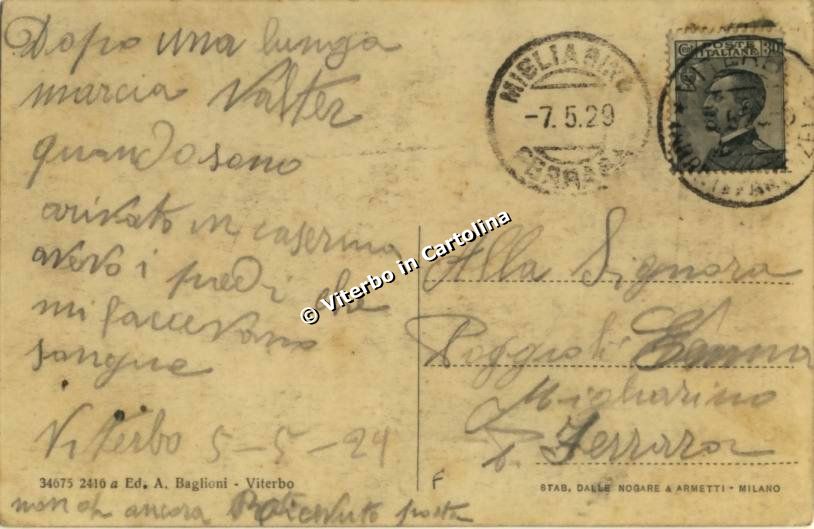 Dopo una lunga
marcia Valter
quando sono
arivato in caserma
avevo i piedi che
mi faccevano
sangue
Viterbo 5-5-29
34675 2416 a Ed. A. Baglioni - Viterbo
non ancora ricevuto posta
MIGLIARINO
-7.5.29
FERRARA
POSTE ITALIANE 30
Alla Signora
Poggioli Emma
Migliarino
P. Ferrara
F
STAB. DALLE NOGARE & ARMETTI - MILANO
© Viterbo in Cartolina